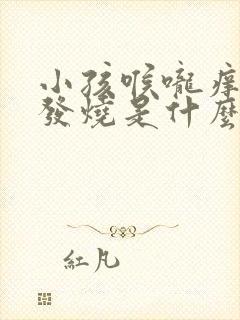 小孩喉嚨痒
發燒是什麼
紅凡